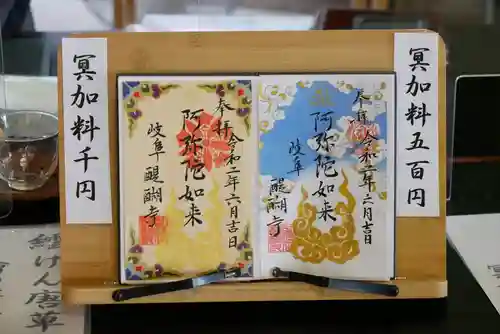 冥加料千円
奉拝
令和二年六月吉日
阿弥陀如来
岐阜
醍醐寺
冥加料五百円
奉拝
令和二年六月吉日
阿弥陀如来
岐阜
醍醐寺
けん唐草